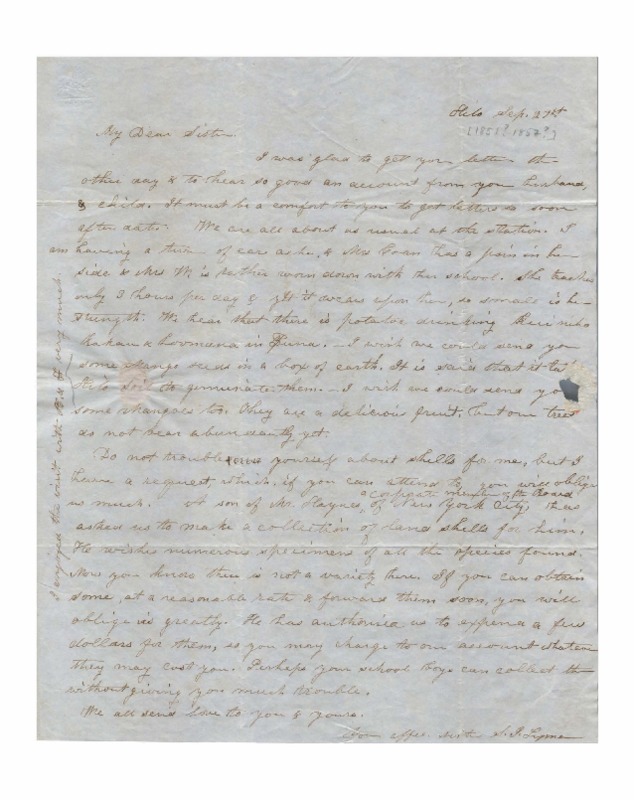 Hilo Sep. 27th
[1851? 1857?]
My Dear Sister
I was glad to get your letter the
other day & to hear so good an account from you husband,
& child. It must be a comfort to you to get letters so soon
after date. We are all about as usual at the station. I
am having a turn of ear ache, & Mrs Coan has a pain in her
side & Mrs W is rather worn down with her school. She teaches
only 3 hours per day & yet it wears upon her, so small is her
strength. We hear that there is potatoe drinking
& hoomana in Puna. - I wish we could send you
some mango seeds in a box of earth. It is said that it takes
to germinate them. - I wish we could send you
some mangoes too. They are a delicious fruit, but our trees
do not bear abundantly yet.
Do not trouble yourself about shells for me, but I
have a request which, if you can attend to you will oblige
a corporate member of the Board
us much. A son of Mr. Haynes, of New York City, has
asked us to make a collection of land shells for him.
He wishes numerous specimens of all the species found.
Now you know there is not a variety here. If you can obtain
some, at a reasonable rate & forward them soon, you will
oblige us greatly. He has authorized us to expend a few
dollars for them, so you may charge to our account whatever
they may cost you. Perhaps your school boys can collect them
without giving you much trouble.
We all send love to you & yours.
Your affec. sister S. J. Lyman
I enjoyed the visit with very much.